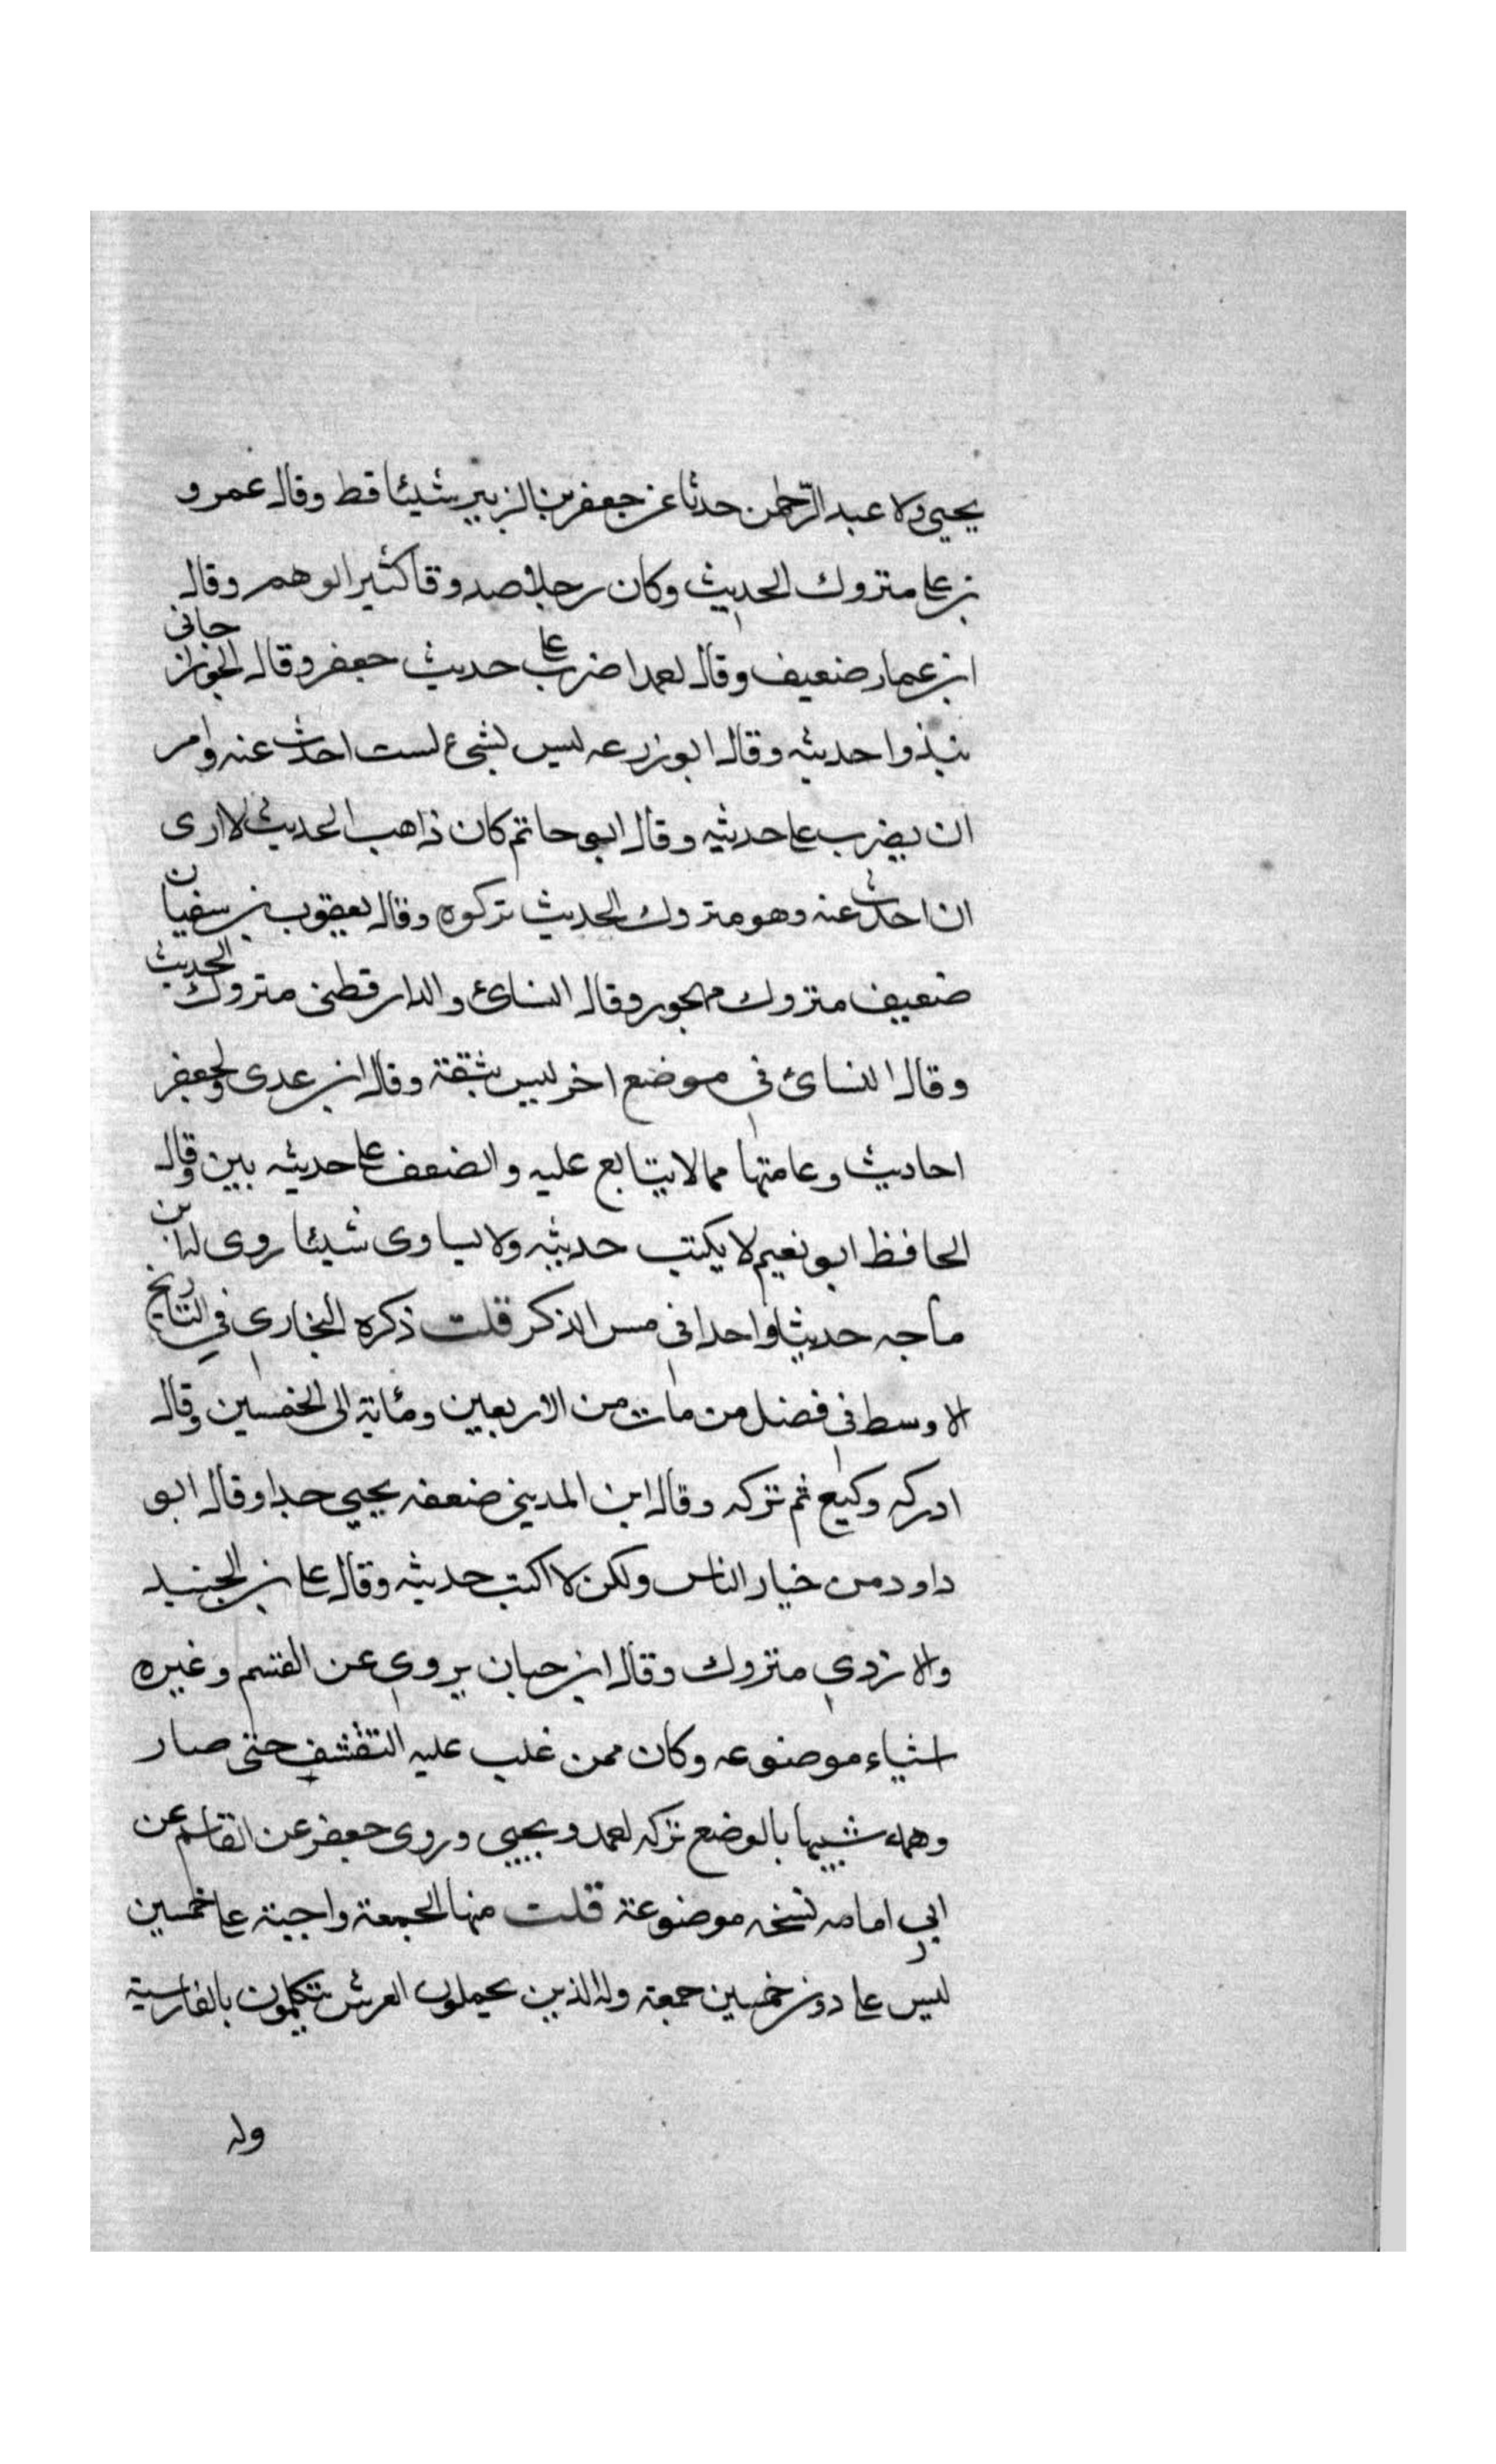 يحيى ولا عبد الرحمن حدثا عن جعفر بن الزبير شيئا قط وقال عمرو
بن على متروك الحديث وكان رجلا صدوقا كثير الوهم وقال
ابن عمار ضعيف وقال احمد اضرب على حديث جعفر وقال الجوزجانى
نبذوا حديثه وقال ابو زرعه ليس بشىء لست احدث عنه وامر
ان يضرب على حديثه وقال ابو حاتم كان ذاهب الحديث لا ارى
ان احدث عنه وهو متروك الحديث تركوه وقال يعقوب بن سفيان
ضعيف متروك مهجور وقال النسائ والدارقطنى متروك الحديث
وقال النسائ في موضع اخر ليس بثقة وقال ابن عدى ولجعفر
احاديث وعامتها مما لا يتابع عليه والضعف على حديثه بين وقال
الحافظ ابو نعيم لا يكتب حديثه ولا يساوى شيئا روى له ابن
ماجه حديثا واحدا فى مس الذكر قلت ذكره البخارى في التاريخ
الاوسط فى فصل من مات من الاربعين ومئاية الى الخمسين وقال
ادركه وكيع ثم تركه وقال ابن المدينى ضعفه يحيى جدا وقال ابو
داود من خيار الناس ولكن لا اكتب حديثه وقال على بن الجنيد
والازدي متروك وقال ابن حبان يروي عن القسم وغيره
اشياء موضوعه وكان ممن غلب عليه التقشف حتى صار
وهمه شبيها بالوضع تركه احمد ويحيى وروى جعفر عن القاسم عن
ابي امامه نسخه موضوعة قلت منها الجمعة واجبة على خمسين
ليس على دون خمسين جمعة وله الذين يحملون العرش يتكلمون بالفارسية
وله